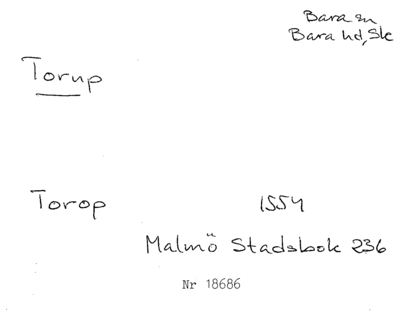 Bara sn
Bara hd, Sk
Torup
Torop 1554
Malmö Stadsbok 236
Nr 18686